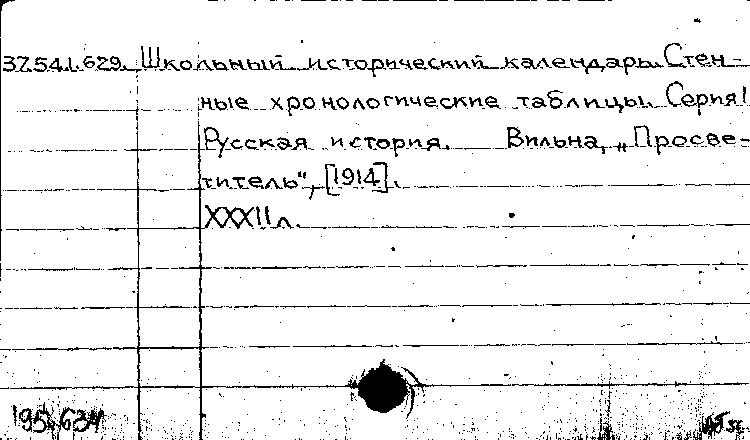 37.54.1.629. Школьный исторический календарь. Стен-
ные хронологические таблицы. Серия I
Русская история. Вильна, „Просве-
титель", [1914].
XXXII л.
195.634